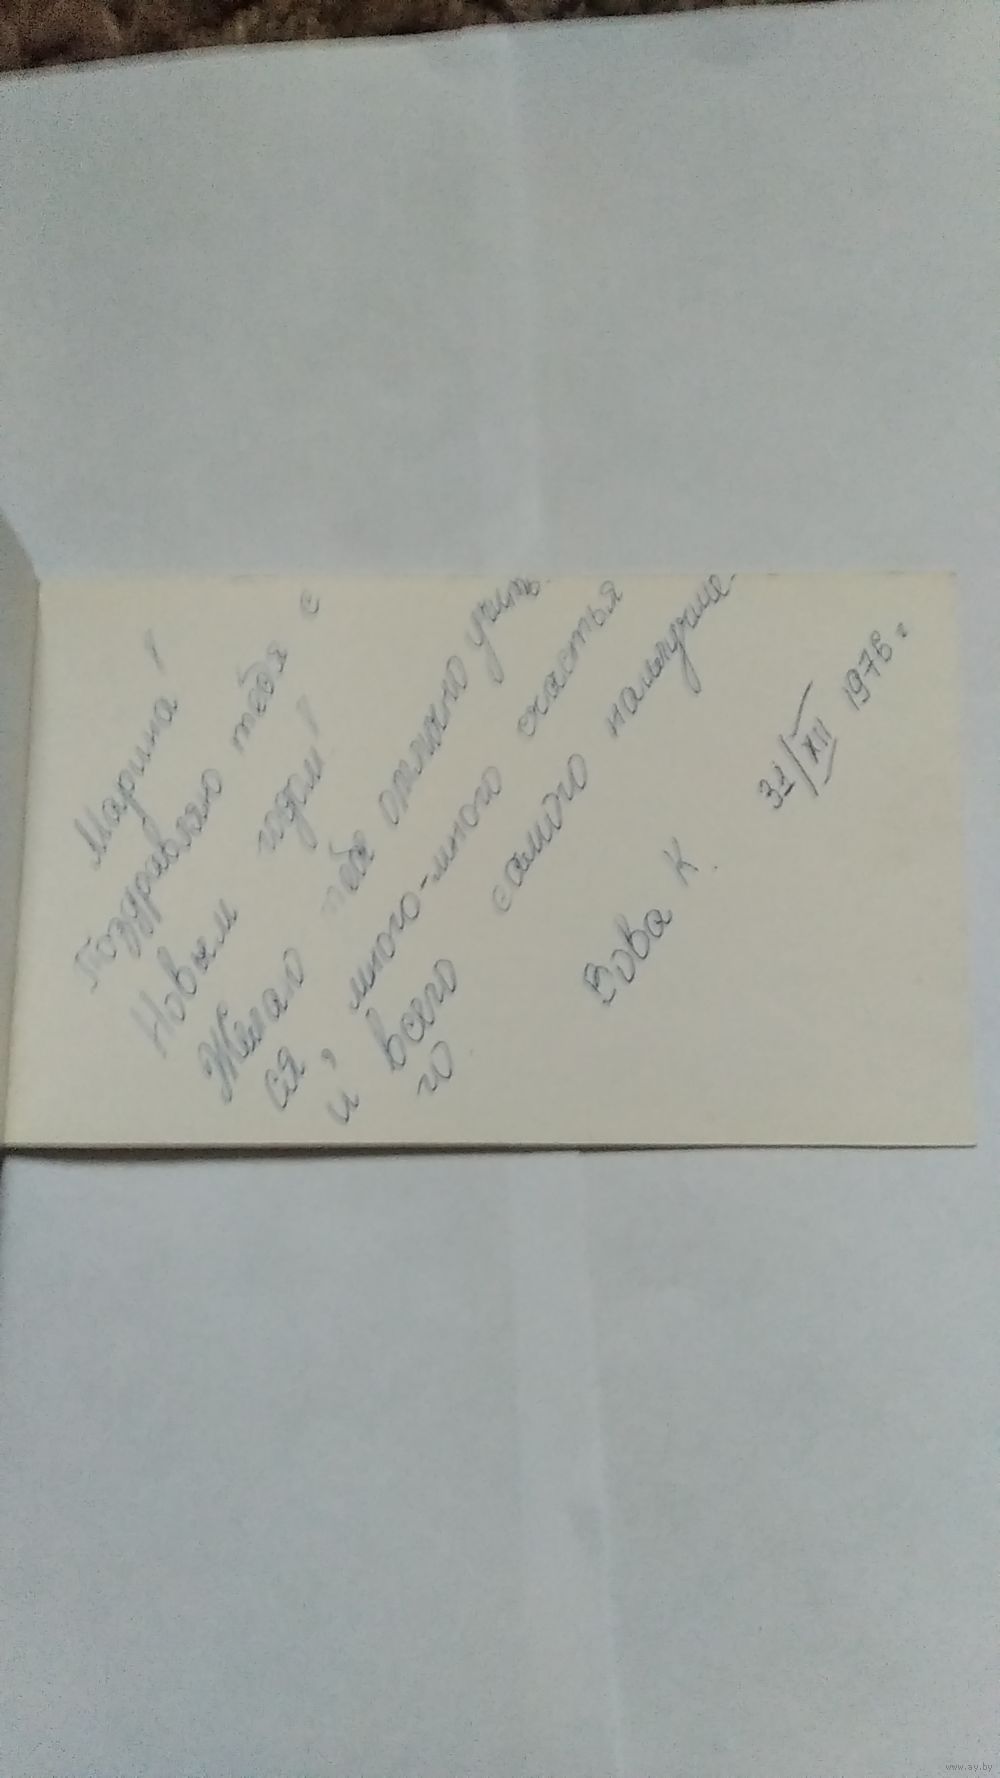 Марина!
Поздравляю тебя с
Новым годом!
Желаю тебе отлично учить-
ся, много-много счастья
и всего самого наилучше-
го
Вова К.
31/XII 1976 г
www.ay.by